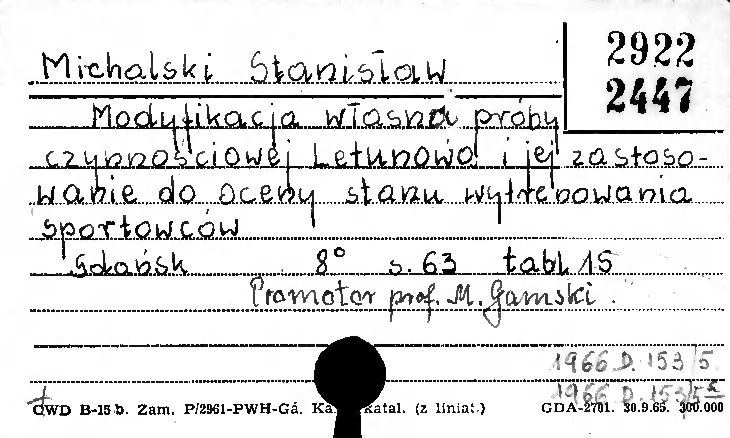 Michalski Stanisław
2922
2447
Modyfikacja własna próby
czynnościowej Letunowa i jej zastoso-
wanie do oceny stanu wytrenowania
sportowców
Gdańsk 8° s. 63 tabl. 15
Promotor prof. M. Gamski.
1966 D. 153/5
1966 D. 153/5
CWD B-15 b. Zam. P/2961-PWH-Gá. katal. (z liniat.) GDA-2701. 30.9.65. 300.000